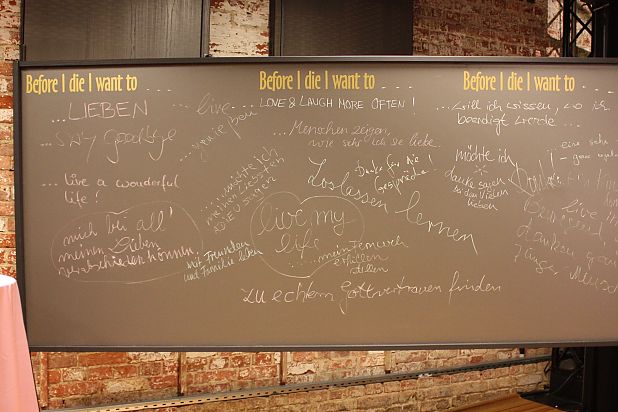 Before I die I want to ...
... LIEBEN ...
... say goodbye
... live a wonderful
life!
mich bei all'
meinen Lieben
verabschieden können.
... live ...
... genießen
... möchte ich
meinen
ADIEU sagen
Mit Freunden
und Familie leben
Before I die I want to ...
LOVE & LAUGH MORE OFTEN!
... Menschen zeigen,
wie sehr ich sie liebe.
Danke für die
Gespräche!
Loslassen lernen
live my
life
... mein Fernweh
stillen
zu echtem Gottvertrauen finden
Before I die I want to ...
... will ich wissen, wo ich
beerdigt werde ...
möchte ich
danke sagen
zu den vielen
lieben
... eine sehr
live in